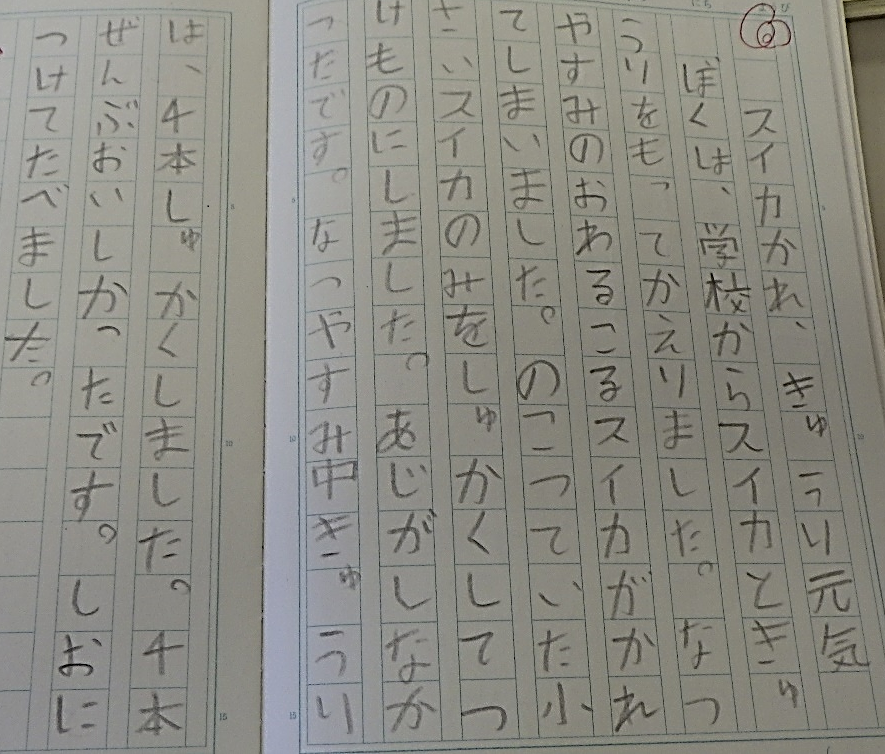 スイカかれ、きゅうり元気
ぼくは、学校からスイカときゅ
うりをもってかえりました。なつ
やすみのおわるこるスイカがかれ
てしまいました。のこっていた小
さいスイカのみをしゅかくしてつ
けものにしました。あじがしなか
ったです。なつやすみ中きゅうり
は、4本しゅかくしました。4本
ぜんぶおいしかったです。しおに
つけてたべました。